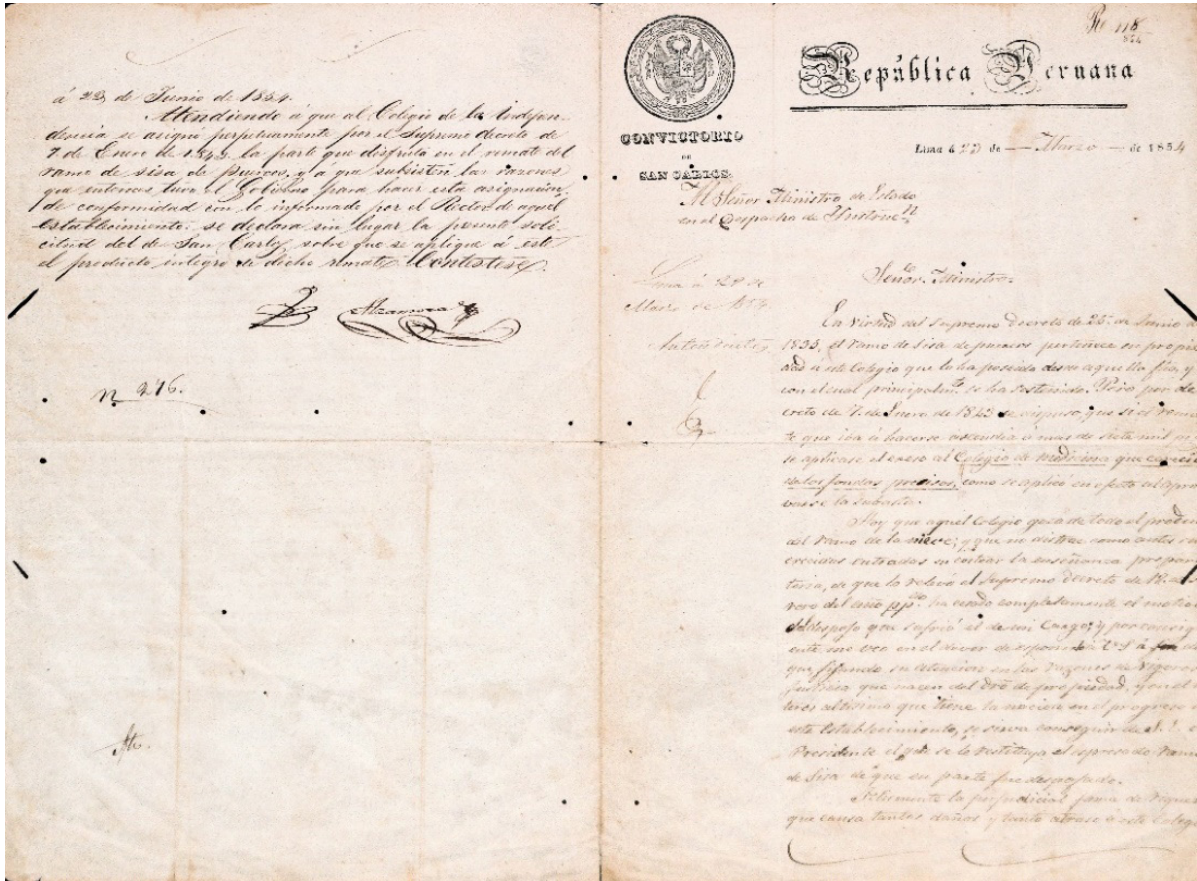 á 22 de Junio de 1854.
Atendiendo á que al Colegio de la Indepen-
dencia se asignó perpetuamente por el Supremo decreto de
7 de Enero de 1843 la parte que disfruta en el remate del
ramo de sisa de puercos, y á que subsisten las razones
que entonces tuvo el Gobierno para hacer esta asignacion,
de conformidad con lo informado por el Rector de aquel
establecimiento: se declara sin lugar la presente soli-
citud del de San Carlos, sobre que se aplique á este
el producto integro de dicho remate. Contestese
N 276.
CONVICTORIO
DE
SAN CARLOS.
República Peruana
Lima á 23 de Marzo de 1854
Al Señor Ministro de Estado
en el Despacho de Instruc.n
Lima á 28 de
Marzo de 1854
Señor Ministro.
En virtud del supremo decreto de 25 de Junio de
1835, el ramo de sisa de puercos pertenece en propie
dad á este Colegio que lo ha poseido desde aquella fha, y
con el cual principalm.te se ha sostenido. Pero por de
creto de 7 de Enero de 1843 se dispuso, que si el rema
te que iba á hacerse ascendia á mas de siete mil
se aplicase el exceso al Colegio de medicina que carecia
de los fondos precisos, como se aplicó en efecto al apro
varse la subasta.
Hoy que aquel Colegio goza de todo el produc
del ramo de la nieve; y que no distrae como antes sus
crecidas entradas en costear la enseñanza prepara
toria, de que lo relevó el Supremo decreto de 18
rero del año pp.o ha cesado completamente el motivo
del despojo que sufrió el de mi cargo; y por consigui
ente me veo en el de á US á fin de
que, fijando su atencion en las razones de rigorosa
justicia que nacen del dro de propiedad, y en el
teres altisimo que tiene la nacion en el progreso
este Establecimiento, se sirva conseguir de S. E. el
Presidente el que se le restituya el espresado ramo
de Sisa de que en parte fue despojado.
la perjudicial
que causa tantos daños y tanto atraso á este Colegio